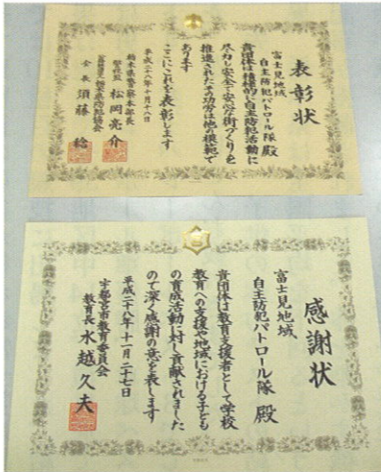 表彰状
富士見地域
自主防犯パトロール隊 殿
貴団体は積極的に自主防犯活動に
尽力し安全で安心な街づくりを
推進されたその功労は他の模範で
あります
ここにこれを表彰します
平成二十八年十月十八日
栃木県警察本部長
警視監 松岡亮介
会長 須藤 稔
感謝状
富士見地域
自主防犯パトロール隊 殿
貴団体は教育支援者として学校
教育への支援や地域における子ども
の育成活動に対し貢献されました
ので深く感謝の意を表します
平成二十八年十一月二十七日
宇都宮市教育委員会
教育長 水越久夫